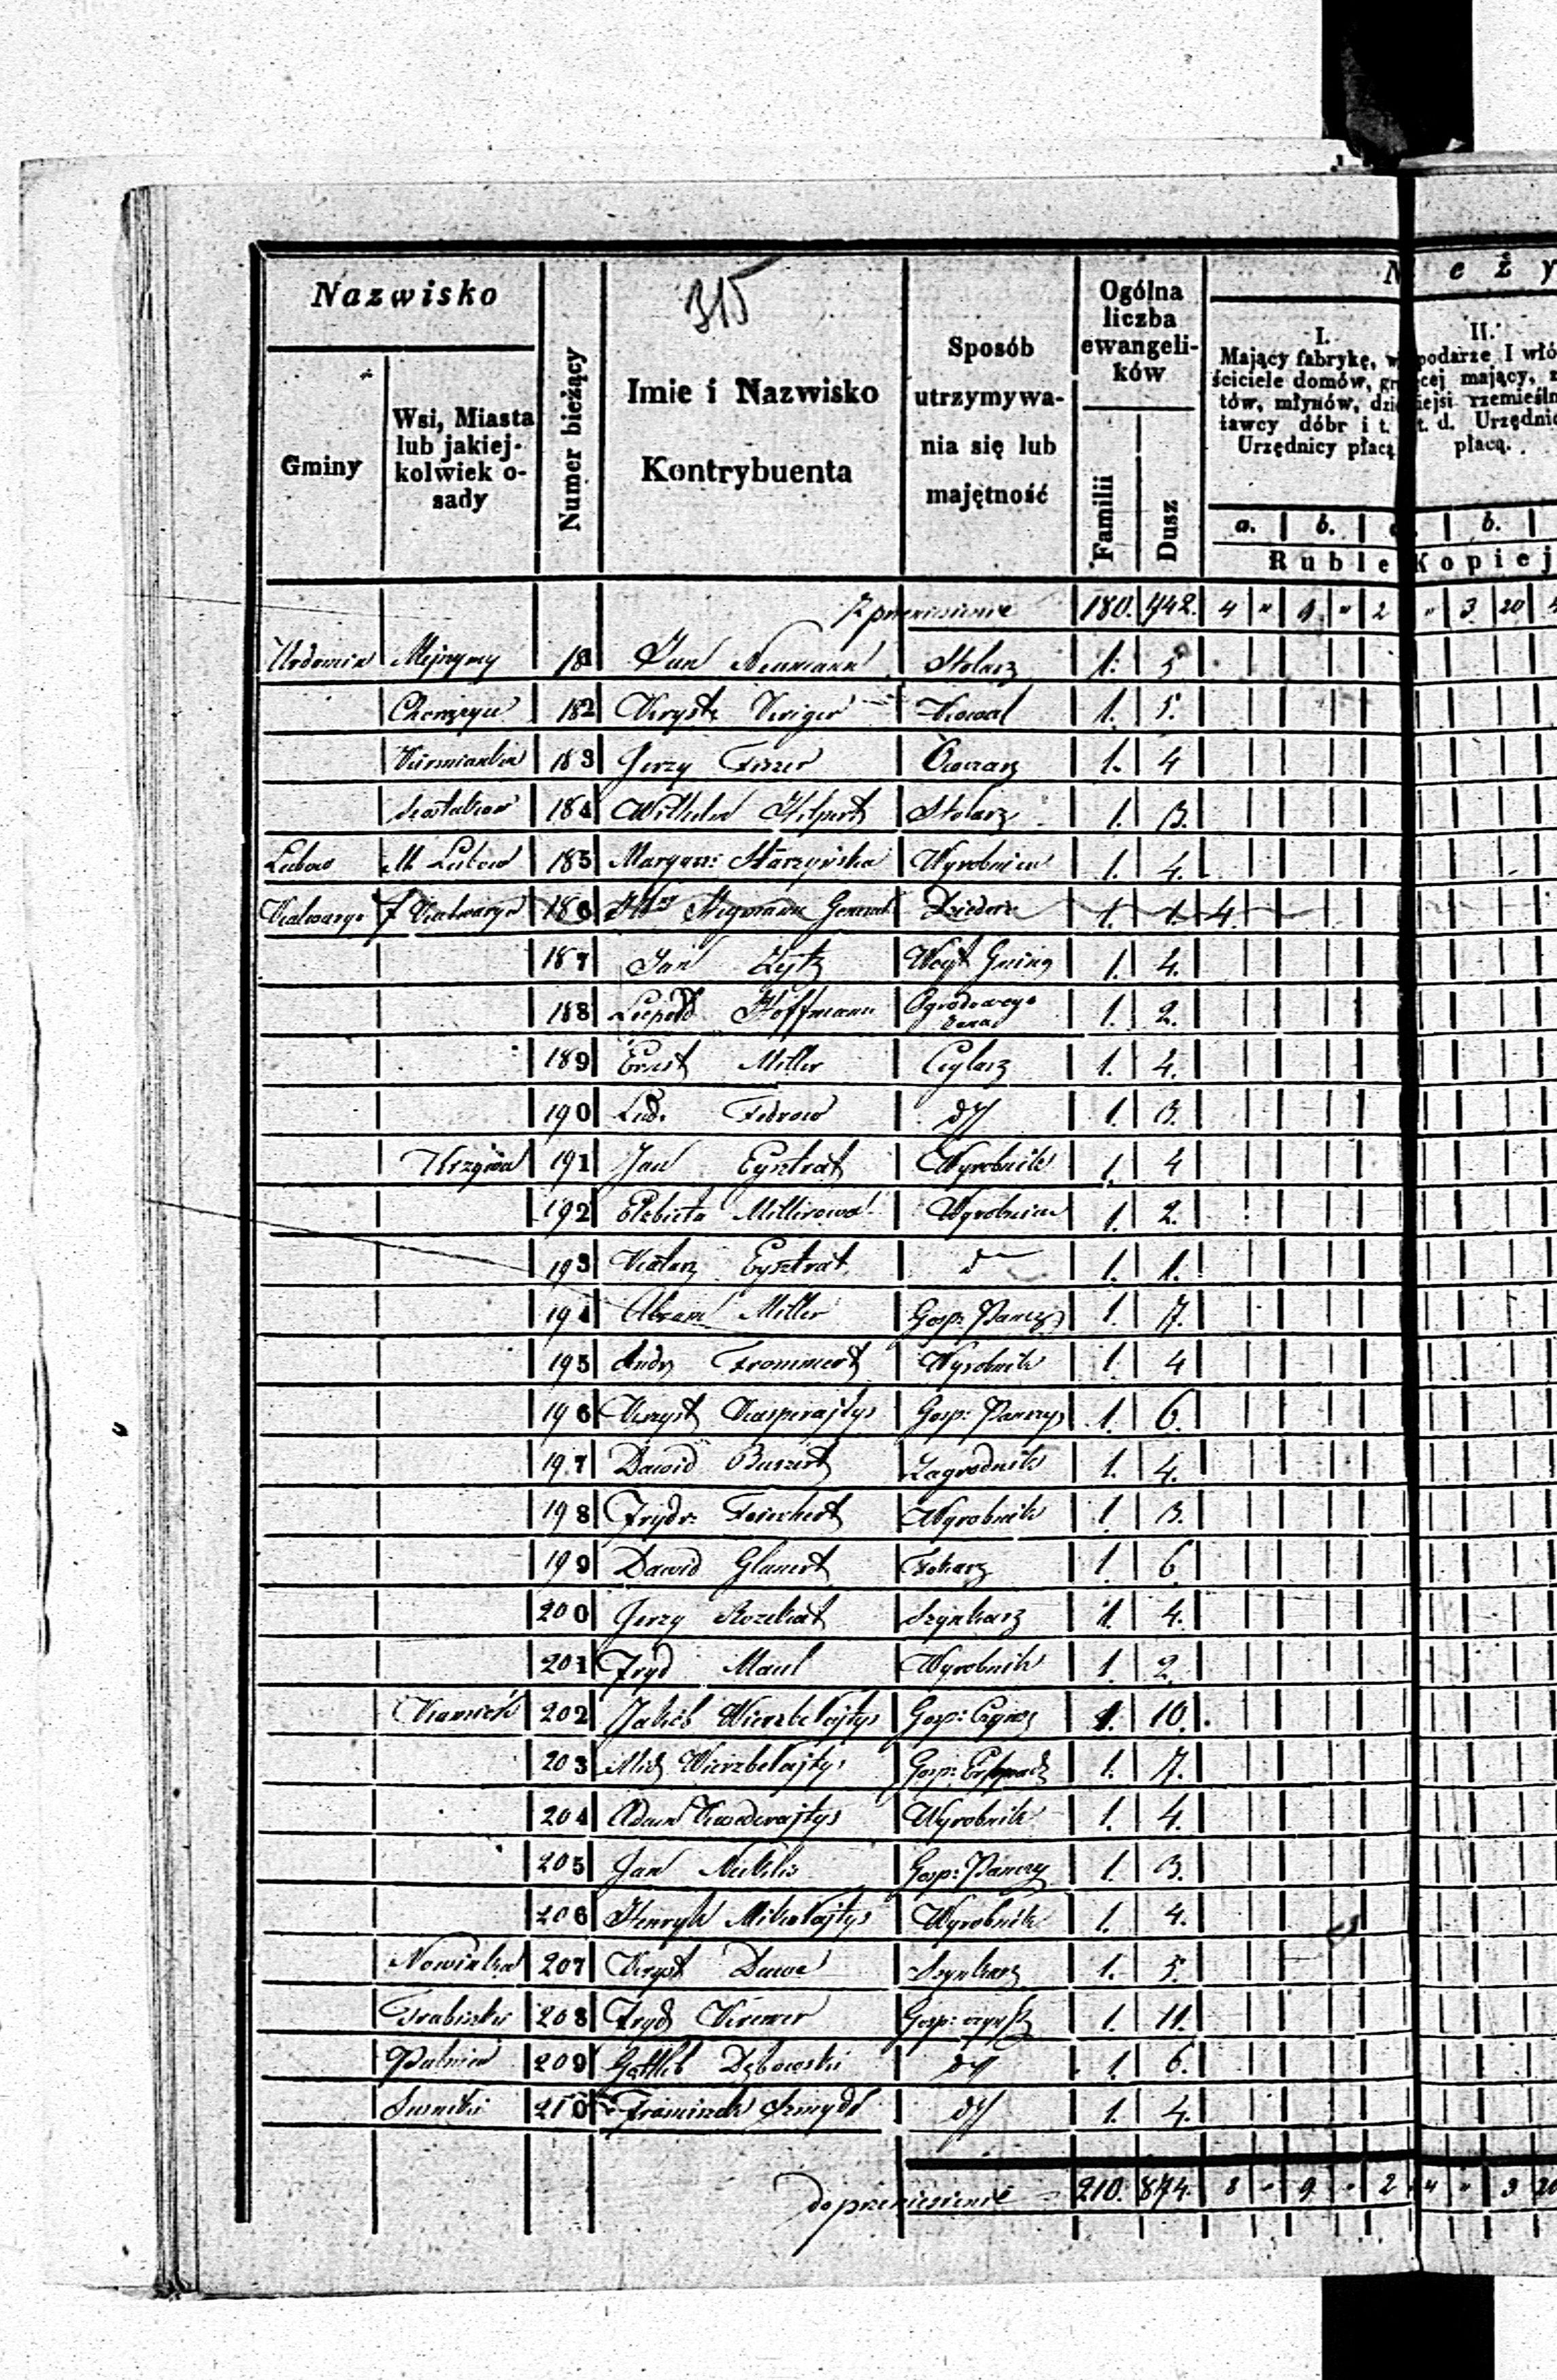 315
Nazwisko
Gminy
Wsi, Miasta
lub jakiej-
kolwiek o-
sady
Numer bieżący
Imie i Nazwisko
Kontrybuenta
Sposób
utrzymywa-
nia się lub
majętność
Ogólna
liczba
ewangeli-
ków
Familii
Dusz
N eży
I.
Mający fabrykę, w
ściciele domów, gr
tów, młynów, dzi
ławcy dóbr i t.
Urzędnicy płacą
II.
podarze I włó
cej mający,
iejsi rzemieśln
t. d. Urzędnic
płacą.
a. b. b.
Ruble Kopiej
Z przeniesienia 180. 742. 4 " 9 " 2 " 3 20
181 Jan Neumann Stolarz 1. 5
182 Kryst. Kriger Kowal 1. 5.
183 Jerzy Fiszer Owczarz 1. 4
184 Wilhelm Hilpert Stolarz 1. 3.
Lubow M. Lubow 185 Margar: Starzyńska Wyrobnica 1. 4.
Kalwarya F. Kalwarya 186 Hegmann Generał Dziedzic 1. 1. 4.
187 Jan Zytz Wójt Gminy 1. 4.
188 Leopold Hoffmann Ogrodowego 1. 2.
189 Ernst Miller Ceglarz 1. 4.
190 Lud. Fedrow d° 1. 3.
191 Jan Eysztrat Wyrobnik 1. 4
192 Elżbieta Millerowa Wyrobnica 1. 2.
193 Katarz Eysztrat d° 1. 1.
194 Abram Miller Gosp: Pańszcz 1. 7.
195 Andrz Frommert Wyrobnik 1. 4
196 Kryst Kasperajtys Gosp: Pańszcz 1. 6.
197 Dawid Buszert Zagrodnik 1. 4.
198 Frydr: Wyrobnik 1 3.
199 Dawid Glanert Tokarz 1 6
200 Jerzy Rozekat Szynkarz 1. 4.
201 Fryd Maul Wyrobnik 1. 2
202 Jakób Wierzbołajtys Gosp: Czynsz 1. 10.
203 Mich Wierzbołajtys Gosp: 1. 7.
204 Adam Kwedrajtys Wyrobnik 1. 4.
205 Jan Gosp: Pańszcz 1. 3.
206 Henryk Mikołajtys Wyrobnik 1. 4.
Nowinka 207 Kryst Dawe Szynkarz 1. 5.
Trabiszki 208 Fryd Kremer Gosp: czynsz 1. 11.
209 Gottlib Dębowski d° 1. 6.
210 Franciszek Szmydt d° 1. 4.
do przeniesienia 210. 874. 8 " 9 " 2 4 " 3 20